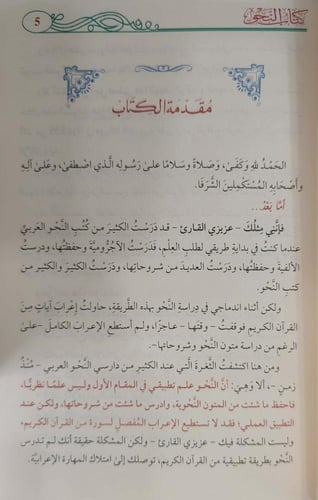 كتاب النحو
5
مُقدمة الكتاب
الحَمْدُ للهِ وَكَفَىٰ، وَصَلاةً وَسَلامًا علىٰ رَسُولِهِ الَّذي اصْطَفىٰ، وَعَلىٰ آلِهِ
وَأَصْحَابِهِ المُسْتَكْمِلينَ الشَّرَفَا.
أَمَّا بَعْدُ...
فإنَّني مِثْلُكَ - عزيزي القارئ - قد دَرَسْتُ الكثيرَ من كُتُبِ النَّحْوِ العَرَبيِّ
عندما كنتُ في بدايةِ طريقي لطلبِ العِلْمِ، فَدَرَسْتُ الآجُرُّوميَّةَ وحَفِظْتُها، ودرستُ
الألفيةَ وحَفِظْتُها، ودَرَسْتُ العديدَ من شروحاتِها، ودَرَسْتُ الكثيرَ والكثيرَ من
كتبِ النَّحْوِ.
ولكن أثناءَ اندماجي في دراسةِ النَّحْوِ بهذه الطَّريقةِ، حاولتُ إعْرابَ آياتٍ مِنَ
القرآنِ الكريمِ فوقفتُ - وقتَها - عاجزًا، ولم أستطعِ الإعرابَ الكاملَ - على
الرغمِ من دراسةِ متونِ النَّحْوِ وشروحاتِها -.
ومن هنا اكتشفتُ الثَّغرةَ الَّتي عندَ الكثيرِ من دارسي النَّحْوِ العربي - مُنْذُ
زمنٍ -، ألا وهِيَ: أنَّ النَّحْوَ علم تطبيقي في المقام الأول وليس علمًا نظريًّا،
فاحفظ ما شئت من المتون النَّحْوية، وادرس ما شئت من شروحاتها، ولكن عند
التطبيق العملي؛ فقد لا تستطيع الإعراب المُفَصل لسورة من القرآن الكريم،
وليست المشكلة فيك - عزيزي القارئ - ولكن المشكلة حقيقة أنك لم تدرس
النَّحْوَ بطريقة تطبيقية من القرآن الكريم، توصلك إلى امتلاك المهارة الإعرابيَّة.